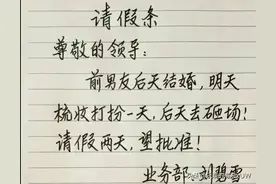 请假条
尊敬的领导：
前男友后天结婚，明天
梳妆打扮一天，后天去砸场！
请假两天，望批准！
业务部：刘碧雲